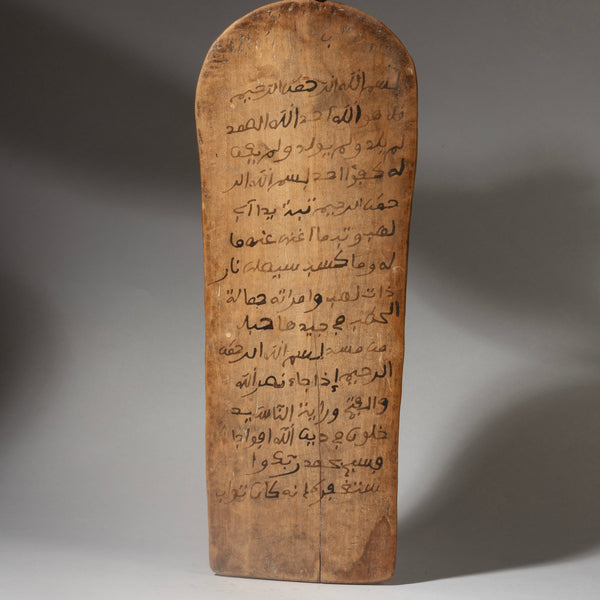 بسم الله الرحمن الرحيم
قل هو الله احد الله الصمد
لم يلد ولم يولد ولم يكن
له كفوا احد بسم الله الر
حمن الرحيم تبت يدا أب
لهب وتب ما أغنى عنه ما
له وما كسب سيصلى نار
ذات لهب وامراته حمالة
الحطب في جيدها حبل
من مسد بسم الله الرحمن
الرحيم إذا جاء نصر الله
والفتح ورأيت الناس يد
خلون في دين الله افواجا
فسبح بحمد ربك وا
ستغفره إنه كان تواب